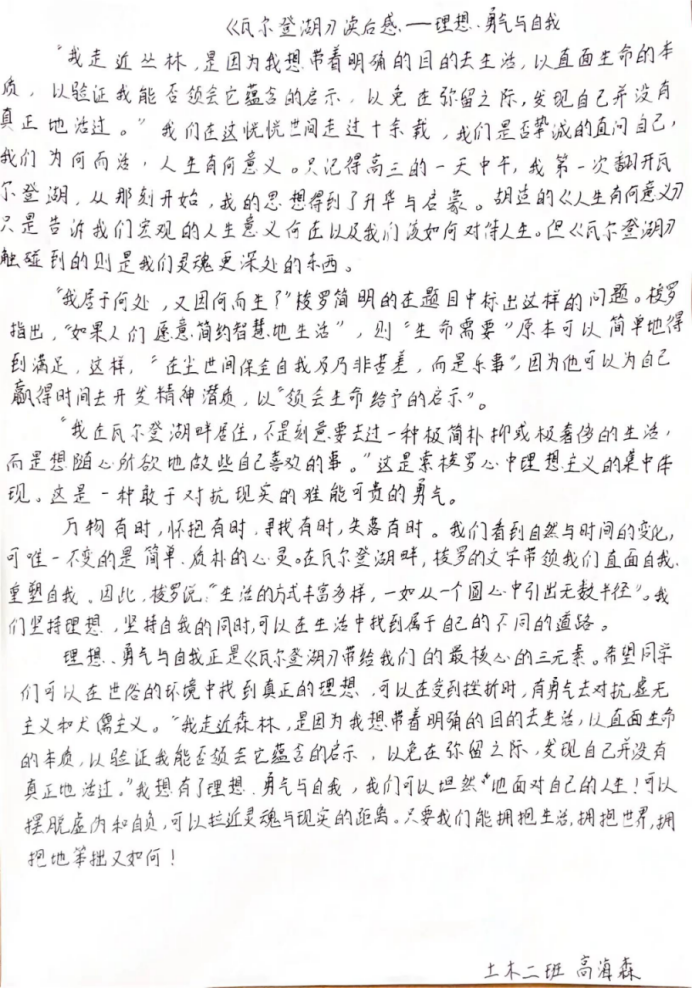 《瓦尔登湖》读后感——理想、勇气与自我
“我走近丛林,是因为我想带着明确的目的去生活,以直面生命的本
质,以验证我能否领会它蕴含的启示,以免在弥留之际,发现自己并没有
真正地活过。”我们在这恍恍世间走过十余载,我们是否挚诚的直问自己,
我们为何而活,人生有何意义。只记得高三的一天中午,我第一次翻开瓦
尔登湖,从那刻开始,我的思想得到了升华与启蒙。胡适的《人生有何意义》
只是告诉我们宏观的人生意义何在以及我们该如何对待人生。但《瓦尔登湖》
触碰到的则是我们灵魂更深处的东西。
“我居于何处,又因何而生?”梭罗简明的在题目中标出这样的问题。梭罗
指出,“如果人们愿意简约智慧地生活”,则“生命需要”原本可以简单地得
到满足,这样,“在尘世间保全自我乃非苦差,而是乐事”,因为他可以为自己
赢得时间去开发精神潜质,以“领会生命给予的启示”。
“我在瓦尔登湖畔居住,不是刻意要去过一种极简朴抑或极奢侈的生活,
而是想随心所欲地做些自己喜欢的事。”这是索梭罗心中理想主义的集中体
现。这是一种敢于对抗现实的难能可贵的勇气。
万物有时,怀抱有时,寻找有时,失落有时。我们看到自然与时间的变化,
可唯一不变的是简单、质朴的心灵。在瓦尔登湖畔,梭罗的文字带领我们直面自我、
重塑自我。因此,梭罗说,“生活的方式丰富多样,一如从一个圆心中引出无数半径”。我
们坚持理想,坚持自我的同时,可以在生活中找到属于自己的不同的道路。
理想、勇气与自我正是《瓦尔登湖》带给我们的最核心的三元素。希望同学
们可以在世俗的环境中找到真正的理想,可以在受到挫折时,有勇气去对抗虚无
主义和犬儒主义。“我走近森林,是因为我想带着明确的目的去生活,以直面生命
的本质,以验证我能否领会它蕴含的启示,以免在弥留之际,发现自己并没有
真正地活过。”我想有了理想、勇气与自我,我们可以坦然地面对自己的人生!可以
摆脱虚伪和自负,可以拉近灵魂与现实的距离。只要我们能拥抱生活,拥抱世界,拥
抱地笨拙又如何!
土木二班 高海森